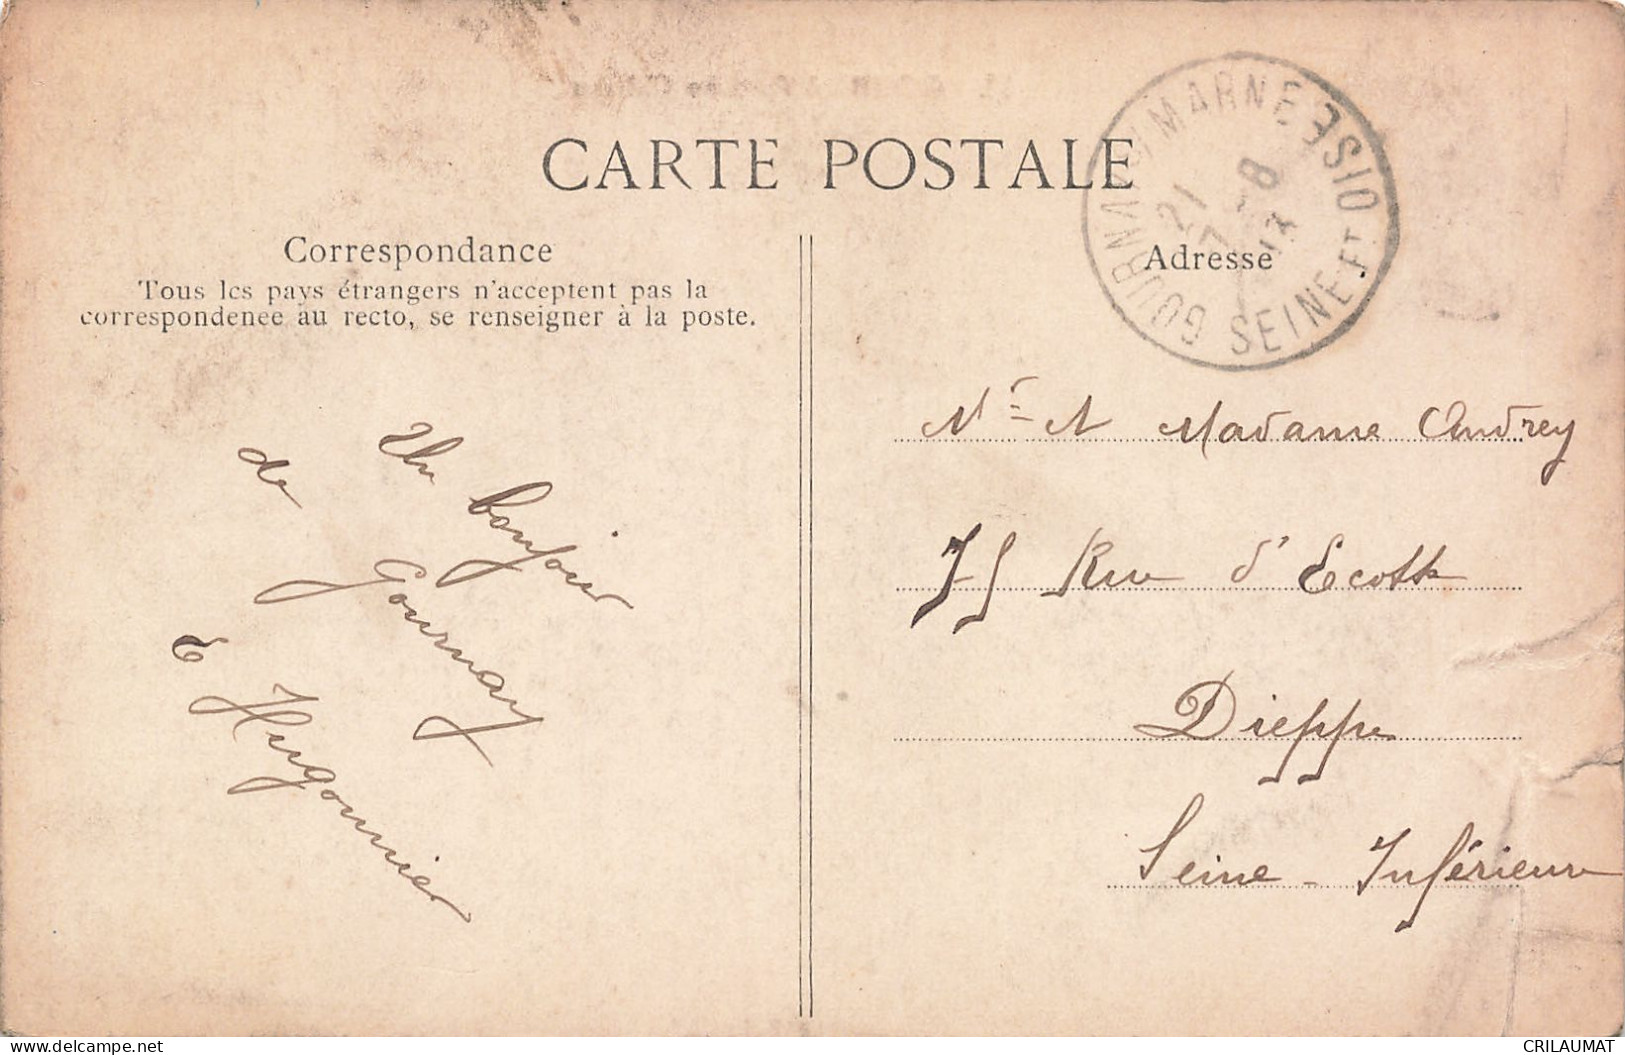 CARTE POSTALE
Correspondance
Tous les pays étrangers n'acceptent pas la
correspondenee au recto, se renseigner à la poste.
Un bonjour
de Gournay
E Hugonnier
Adresse
GOURNAY S/ MARNE
SEINE ET OISE
21
7 -8
13
Mr & Madame Audrey
75 Rue d'Ecosse
Dieppe
Seine - Inférieure
CRILAUMAT